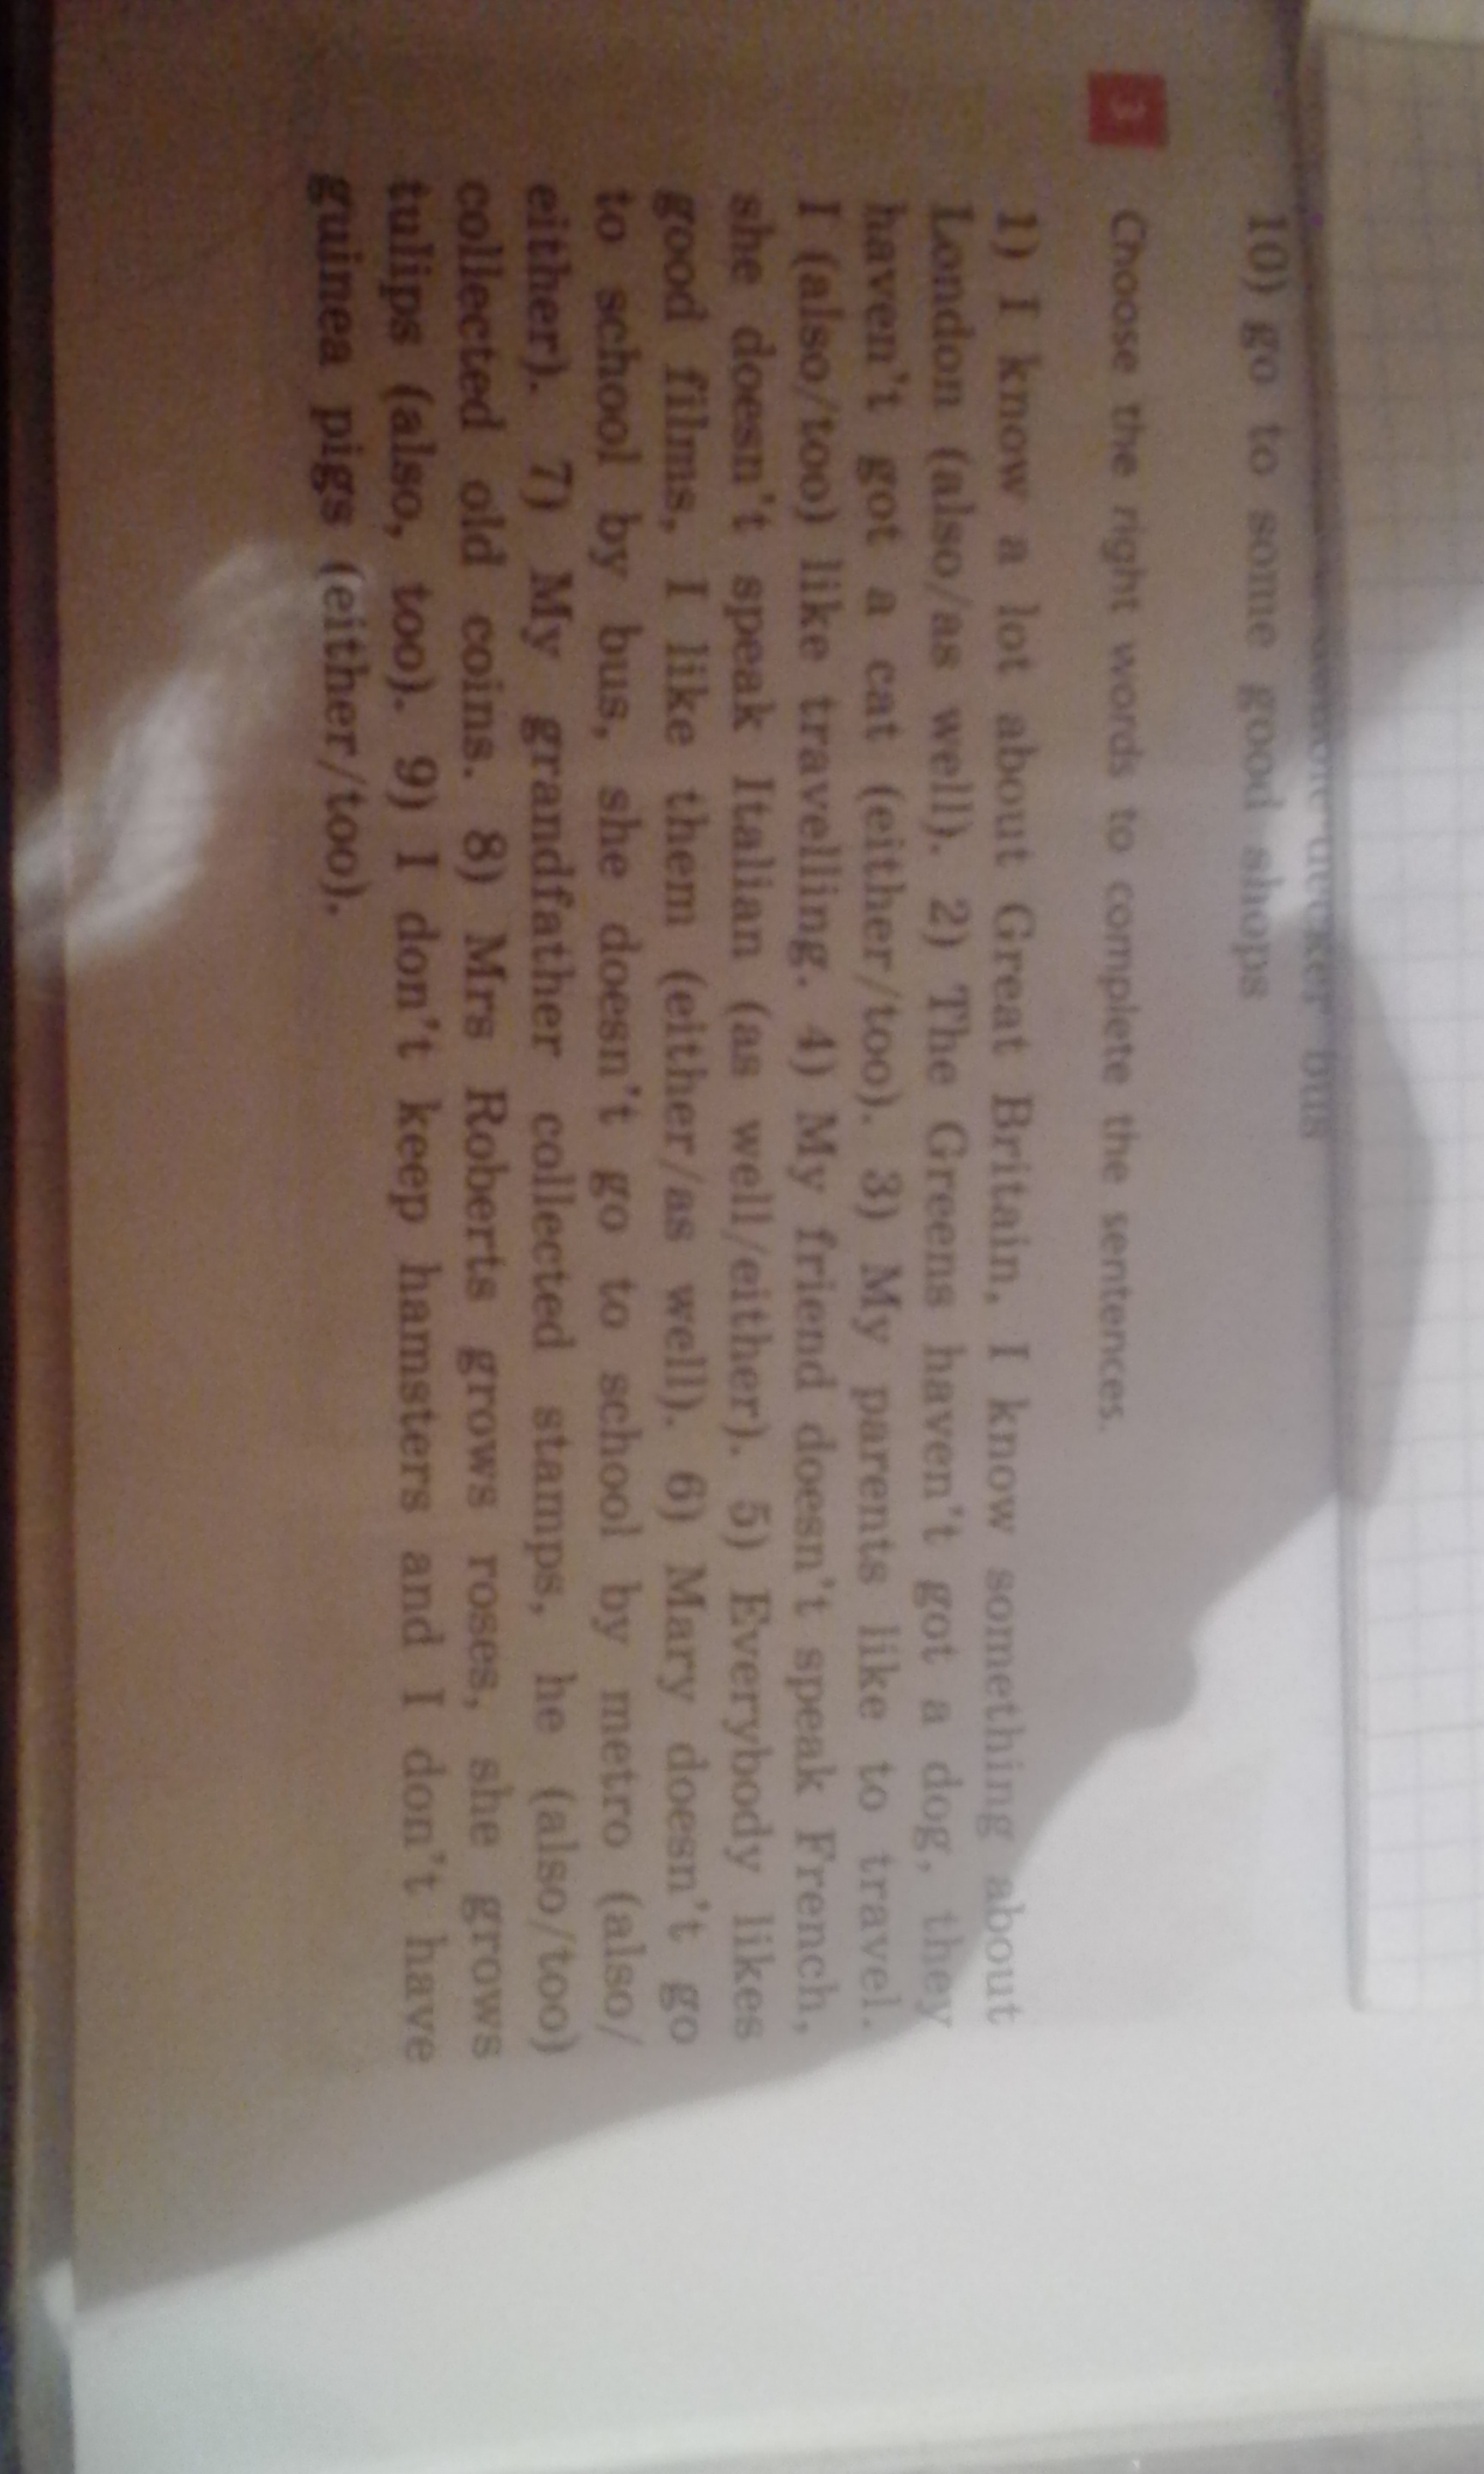 bus
10) go to some good shops
3 Choose the right words to complete the sentences.
1) I know a lot about Great Britain, I know something about
London (also/as well). 2) The Greens haven't got a dog, they
haven't got a cat (either/too). 3) My parents like to travel.
I (also/too) like travelling. 4) My friend doesn't speak French,
she doesn't speak Italian (as well/either). 5) Everybody likes
good films, I like them (either/as well). 6) Mary doesn't go
to school by bus, she doesn't go to school by metro (also/
either). 7) My grandfather collected stamps, he (also/too)
collected old coins. 8) Mrs Roberts grows roses, she grows
tulips (also, too). 9) I don't keep hamsters and I don't have
guinea pigs (either/too).